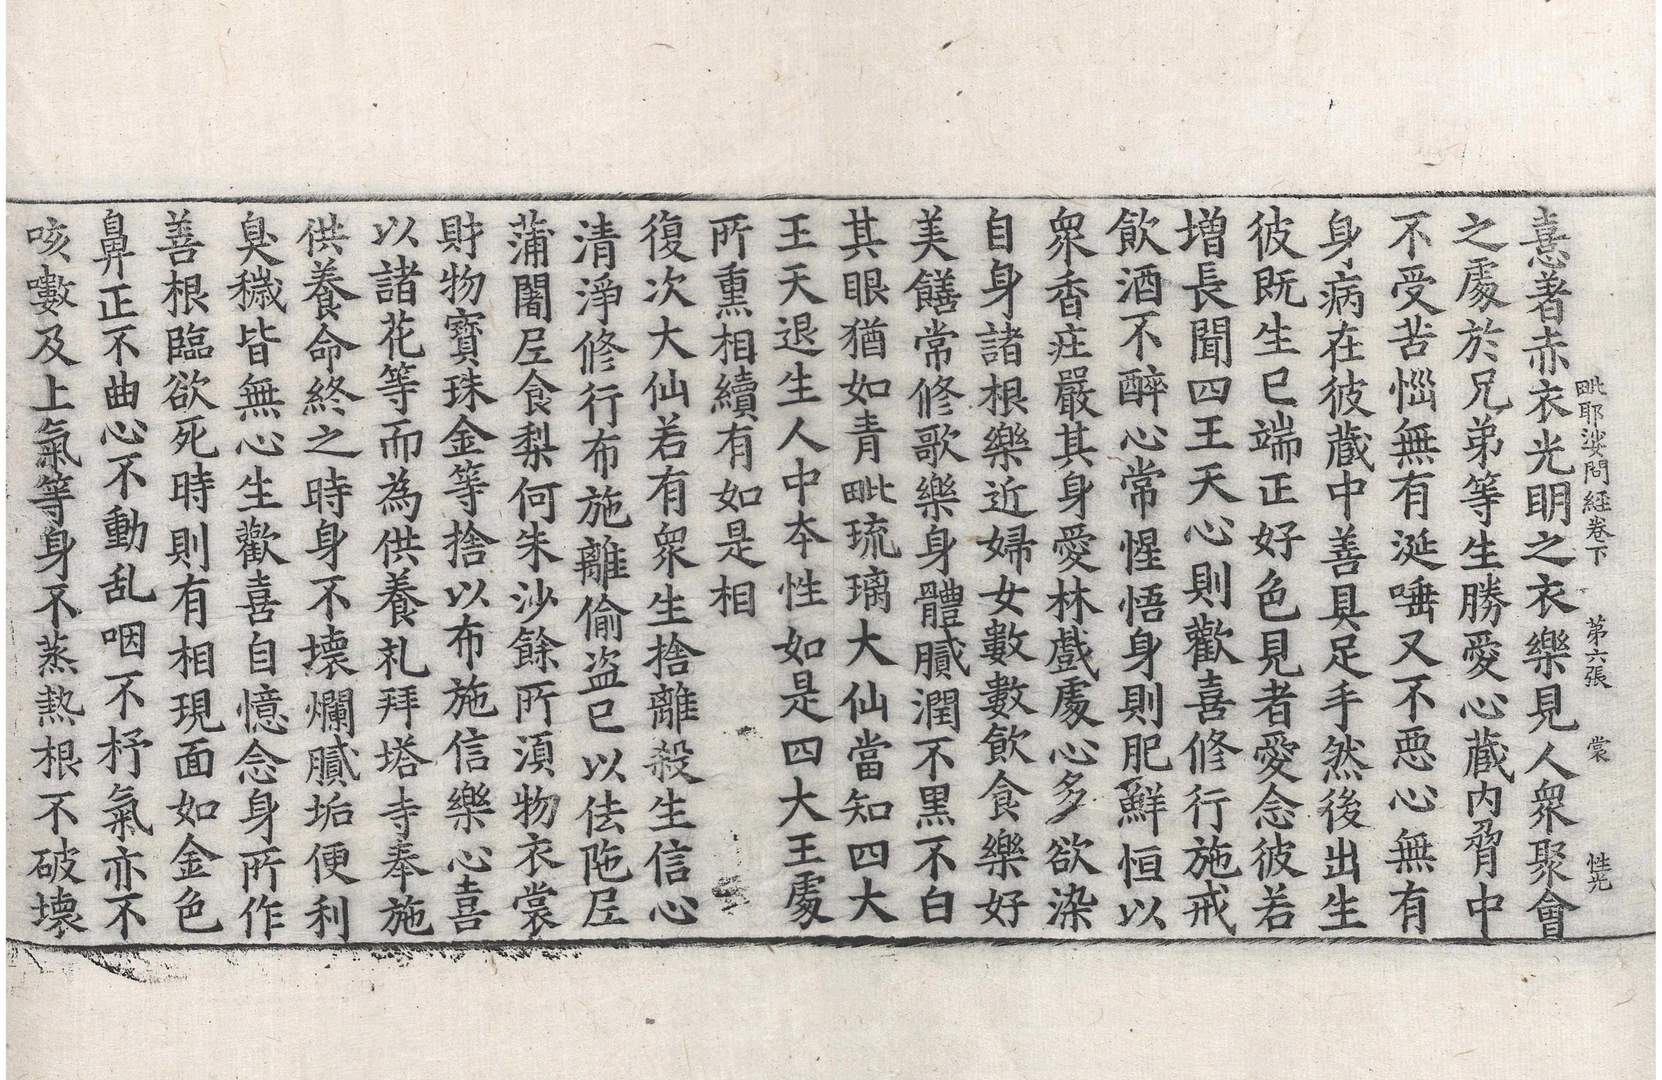 毗耶娑問經卷下 第六張 裳 性光
憙著赤衣光明之衣樂見人衆聚會
之處於兄弟等生勝愛心藏內脅中
不受苦惱無有涎唾又不惡心無有
身病在彼藏中善具足手然後出生
彼既生已端正好色見者愛念彼若
增長聞四王天心則歡喜修行施戒
飲酒不醉心常惺悟身則肥鮮恒以
衆香庄嚴其身愛林戲處心多欲染
自身諸根樂近婦女數數飲食樂好
美饍常修歌樂身體膩潤不黑不白
其眼猶如青毗琉璃大仙當知四大
王天退生人中本性如是四大王處
所熏相續有如是相
復次大仙若有衆生捨離殺生信心
清淨修行布施離偷盜已以佉陁𡰱
蒲闍𡰱食梨何朱沙餘所湏物衣裳
財物寶珠金等捨以布施信樂心喜
以諸花等而為供養礼拜塔寺奉施
供養命終之時身不壞爛膩垢便利
臭穢皆無心生歡喜自憶念身所作
善根臨欲死時則有相現面如金色
鼻正不曲心不動乱咽不杼氣亦不
咳嗽及上氣等身不蒸熱根不破壞